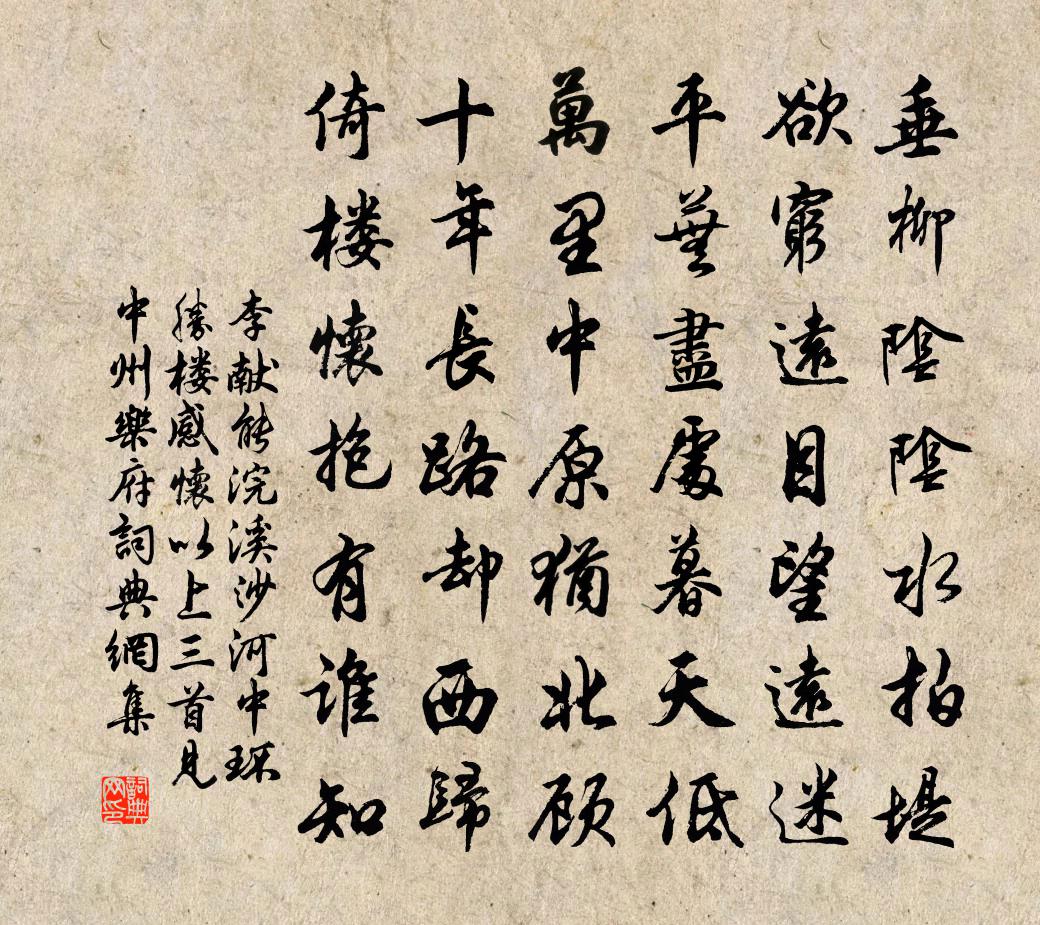 垂柳陰陰水拍堤
欲窮遠目望遠迷
平蕪盡處暮天低
萬里中原猶北顧
十年長路却西歸
倚楼懷抱有誰知
李献能浣溪沙河中環
勝楼感懷以上三首見
中州樂府詞典網集
詞典网印